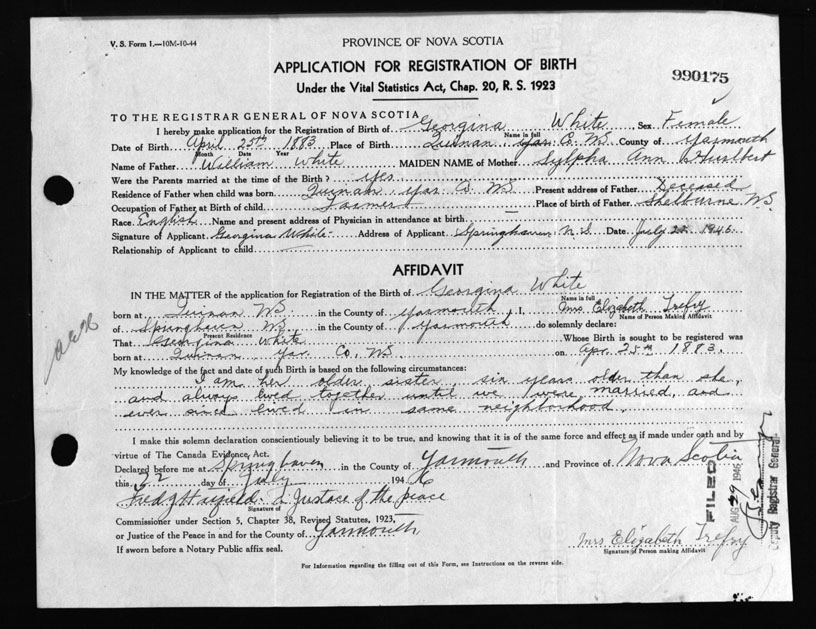 V. S. Form 1.—10M-10-44
PROVINCE OF NOVA SCOTIA
APPLICATION FOR REGISTRATION OF BIRTH
Under the Vital Statistics Act, Chap. 20, R. S. 1923
990175
TO THE REGISTRAR GENERAL OF NOVA SCOTIA
I hereby make application for the Registration of Birth of Georgina White, Sex Female
Name in full
Date of Birth April 25th 1883 Place of Birth Quinan Yar Co. NS County of Yarmouth
Month Date Year
Name of Father William White MAIDEN NAME of Mother Sylpha Ann
Were the Parents married at the time of Birth? Yes
Residence of Father when child was born Quinan Yar Co NS Present address of Father Deceased
Occupation of Father at Birth of child Farmer Place of birth of Father Shelburne NS.
Race English Name and present address of Physician in attendance at birth
Signature of Applicant Georgina White Address of Applicant Springhaven N.S. Date July 22 1946
Relationship of Applicant to child
AFFIDAVIT
IN THE MATTER of the application for Registration of the Birth of Georgina White
Name in full
born at Quinan NS in the County of Yarmouth, I, Mrs Elizabeth Trefry
Name of Person Making Affidavit
of Springhaven NS in the County of Yarmouth do solemnly declare:
Present Residence
That Georgina White Whose Birth is sought to be registered was
born at Quinan Yar Co, NS on Apr 25th 1883.
My knowledge of the fact and date of such Birth is based on the following circumstances:
I am her older sister, six years older than she,
and always lived together until we were married, and
ever since lived in same neighborhood.
I make this solemn declaration conscientiously believing it to be true, and knowing that it is of the same force and effect as if made under oath and by
virtue of The Canada Evidence Act.
Declared before me at Springhaven in the County of Yarmouth and Province of Nova Scotia
this 22 day of July 1946
Fred G Hatfield a Justace of the peace
Signature of
Commissioner under Section 5, Chapter 38, Revised Statutes, 1923,
or Justice of the Peace in and for the County of Yarmouth
If sworn before a Notary Public affix seal.
Mrs Elizabeth Trefry
Signature of Person making Affidavit
For Information regarding the filling out of this Form, see Instructions on the reverse side.
FILED
AUG 29 1946
Deputy Registrar General